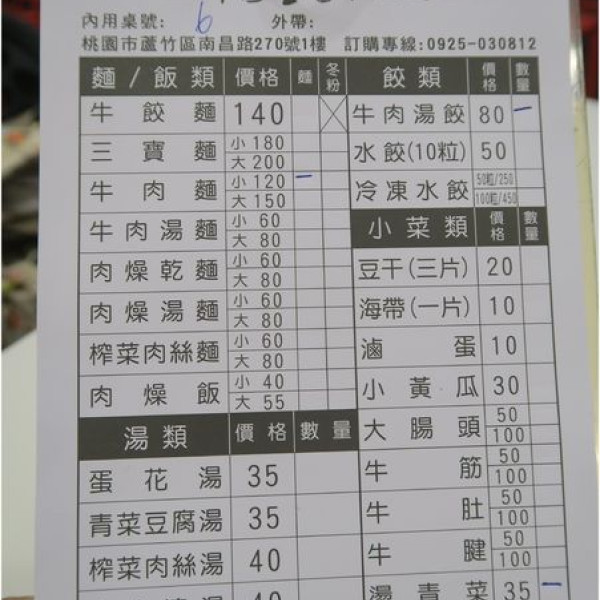 內用桌號: 6 外帶:
桃園市蘆竹區南昌路270號1樓 訂購專線:0925-030812
麵/飯類 價格 麵 冬粉
牛餃麵 140
三寶麵 小180 大200
牛肉麵 小120 大150
牛肉湯麵 小60 大80
肉燥乾麵 小60 大80
肉燥湯麵 小60 大80
榨菜肉絲麵 小60 大80
肉燥飯 小40 大55
湯類 價格 數量
蛋花湯 35
青菜豆腐湯 35
榨菜肉絲湯 40
餃類 價格 數量
牛肉湯餃 80
水餃(10粒) 50
冷凍水餃 50粒/250 100粒/450
小菜類 價格 數量
豆干(三片) 20
海帶(一片) 10
滷蛋 10
小黃瓜 30
大腸頭 50 100
牛筋 50 100
牛肚 50 100
牛腱 50 100
湯青菜 35